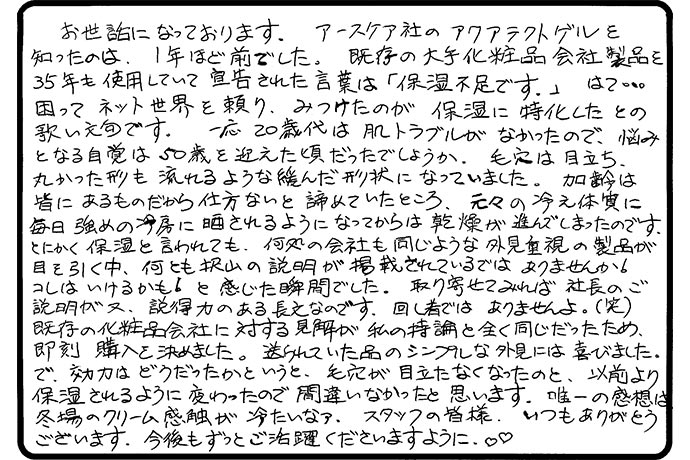 お世話になっております。 アースケア社のアクアテクトゲルを
知ったのは、1年ほど前でした。 既存の大手化粧品会社製品を
35年も使用していて宣告された言葉は「保湿不足です。」 はて・・・
困ってネット世界を頼り、みつけたのが 保湿に特化したとの
歌い文句です。 一応20歳代は肌トラブルがなかったので、悩み
となる自覚は50歳を迎えた頃だったでしょうか。 毛穴は目立ち、
丸かった形も流れるような緩んだ形状になっていました。 加齢は
皆にあるものだから仕方ないと諦めていたところ、元々の冷え体質に
毎日強めの冷房に晒されるようになってからは乾燥が進んでしまったのです。
とにかく保湿と言われても、何処の会社も同じような外見重視の製品が
目を引く中、何とも沢山の説明が掲載されているではありませんか!
コレはいけるかも!と感じた瞬間でした。 取り寄せてみれば社長のご
説明が又、説得力のある長文なのです。回し者ではありませんよ。(笑)
既存の化粧品会社に対する見解が私の持論と全く同じだったため、
即刻 購入を決めました。 送られていた品のシンプルな外見には喜びました。
で、効力はどうだったかというと、毛穴が目立たなくなったのと、以前より
保湿されるように変わったので間違いなかったと思います。唯一の感想は
冬場のクリーム感触が冷たいなァ。 スタッフの皆様、いつもありがとう
ございます。今後もずっとご活躍くださいますように.♡♡